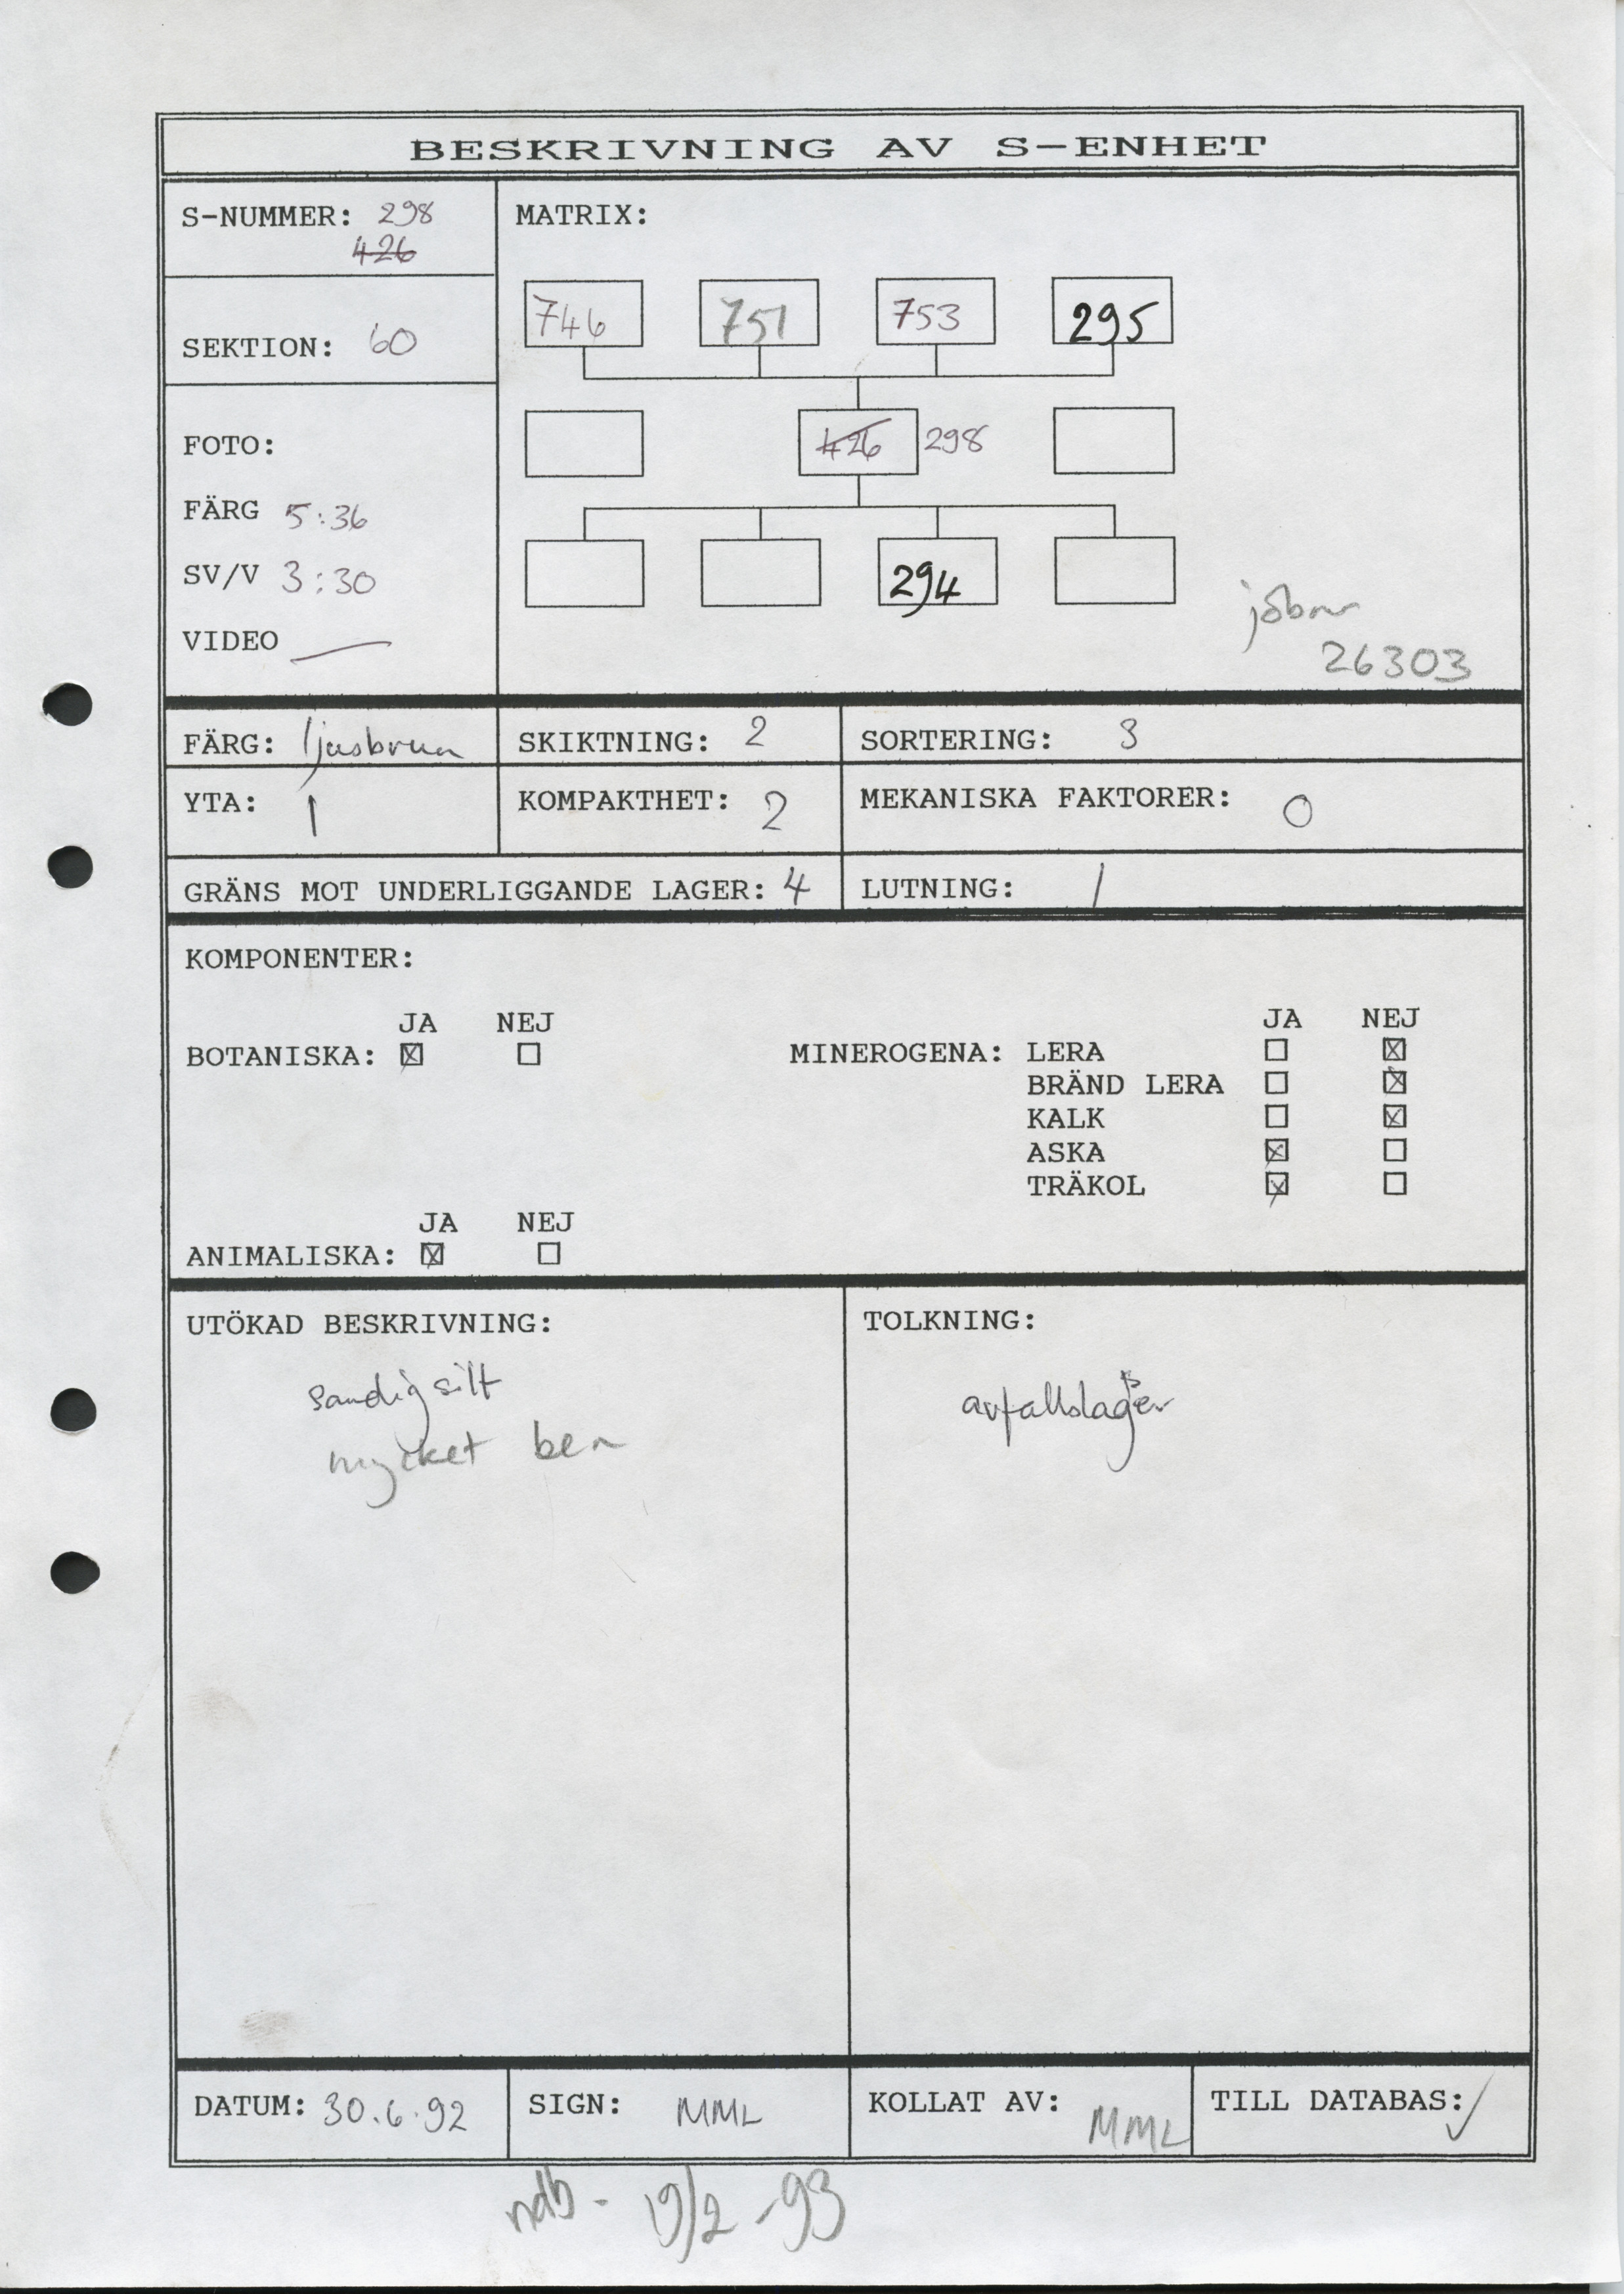 BESKRIVNING AV S-ENHET
S-NUMMER: 298
426
MATRIX:
746 751 753 295
SEKTION: 60
426 298
FOTO:
FÄRG 5:36
SV/V 3:30
294
VIDEO —
26303
FÄRG: ljusbrun SKIKTNING: 2 SORTERING: 3
YTA: 1 KOMPAKTHET: 2 MEKANISKA FAKTORER: 0
GRÄNS MOT UNDERLIGGANDE LAGER: 4 LUTNING: 1
KOMPONENTER:
JA NEJ
BOTANISKA: ☒ ☐
JA NEJ
MINEROGENA: LERA ☐ ☒
BRÄND LERA ☐ ☒
KALK ☐ ☒
ASKA ☒ ☐
TRÄKOL ☒ ☐
JA NEJ
ANIMALISKA: ☒ ☐
UTÖKAD BESKRIVNING:
sandig silt
mycket ben
TOLKNING:
avfallslager
DATUM: 30.6.92 SIGN: MML KOLLAT AV: MML TILL DATABAS: ✓
19/2 -93